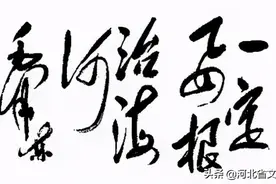 一定
要根
治海
河
毛泽东
头条 @河北省文